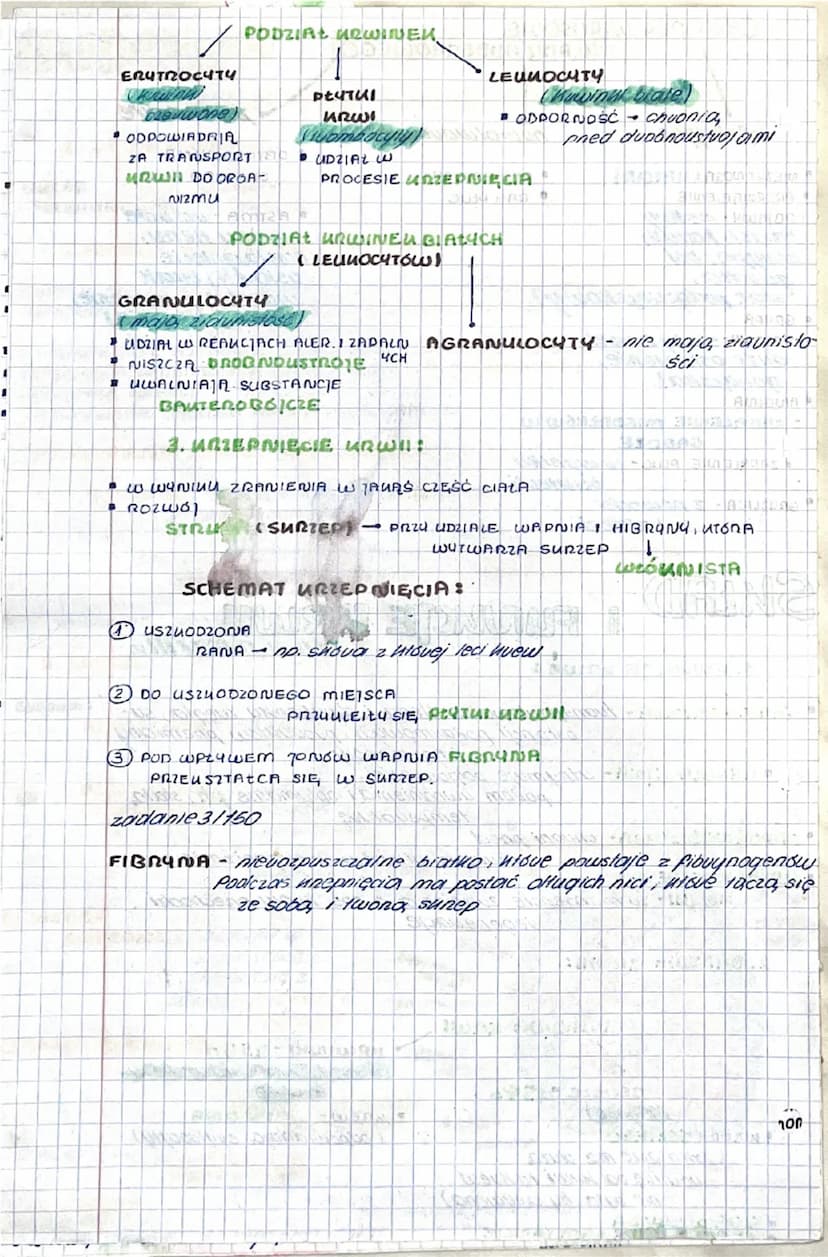 PODZIAŁ KRWINEK
ERYTROCYTY
(krwinki
czerwone)
• ODPOWIADAJĄ
ZA TRANSPORT
KRWII DO ORGA-
NIZMU
PŁYTKI
KRWI
(trombocyty)
• UDZIAŁ W
PROCESIE KRZEPNIĘCIA
LEUKOCYTY
(krwinki białe)
• ODPORNOŚĆ → chronią
przed drobnoustrojami
PODZIAŁ KRWINEK BIAŁYCH
(LEUKOCYTÓW)
GRANULOCYTY
(mają ziarnistość)
• UDZIAŁ W REAKCJACH ALER. I ZAPALN
YCH
• NISZCZĄ DROBNOUSTROJE
• UWALNIAJĄ SUBSTANCJE
BAKTEROBÓJCZE
AGRANULOCYTY - nie mają ziarnisto-
ści
3. KRZEPNIĘCIE KRWII:
• W WYNIKU ZRANIENIA W JAKĄŚ CZĘŚĆ CIAŁA
• ROZWÓJ
(SKRZEP) → PRZY UDZIALE WAPNIA I HIBRYNY, KTÓRA
WYTWARZA SKRZEP
WŁÓKNISTA
SCHEMAT KRZEPNIĘCIA:
① USZKODZONA
RANA → np. skóra z której leci krew
② DO USZKODZONEGO MIEJSCA
PRZYKLEIŁY SIĘ PŁYTKI KRWII
③ POD WPŁYWEM JONÓW WAPNIA FIBRYNA
PRZEKSZTAŁCA SIĘ W SKRZEP.
zadanie 3/150
FIBRYNA - nierozpuszczalne białko, które powstaje z fibrynogenów
Podczas krzepnięcia ma postać długich nici, które łączą się
ze sobą i tworzą skrzep